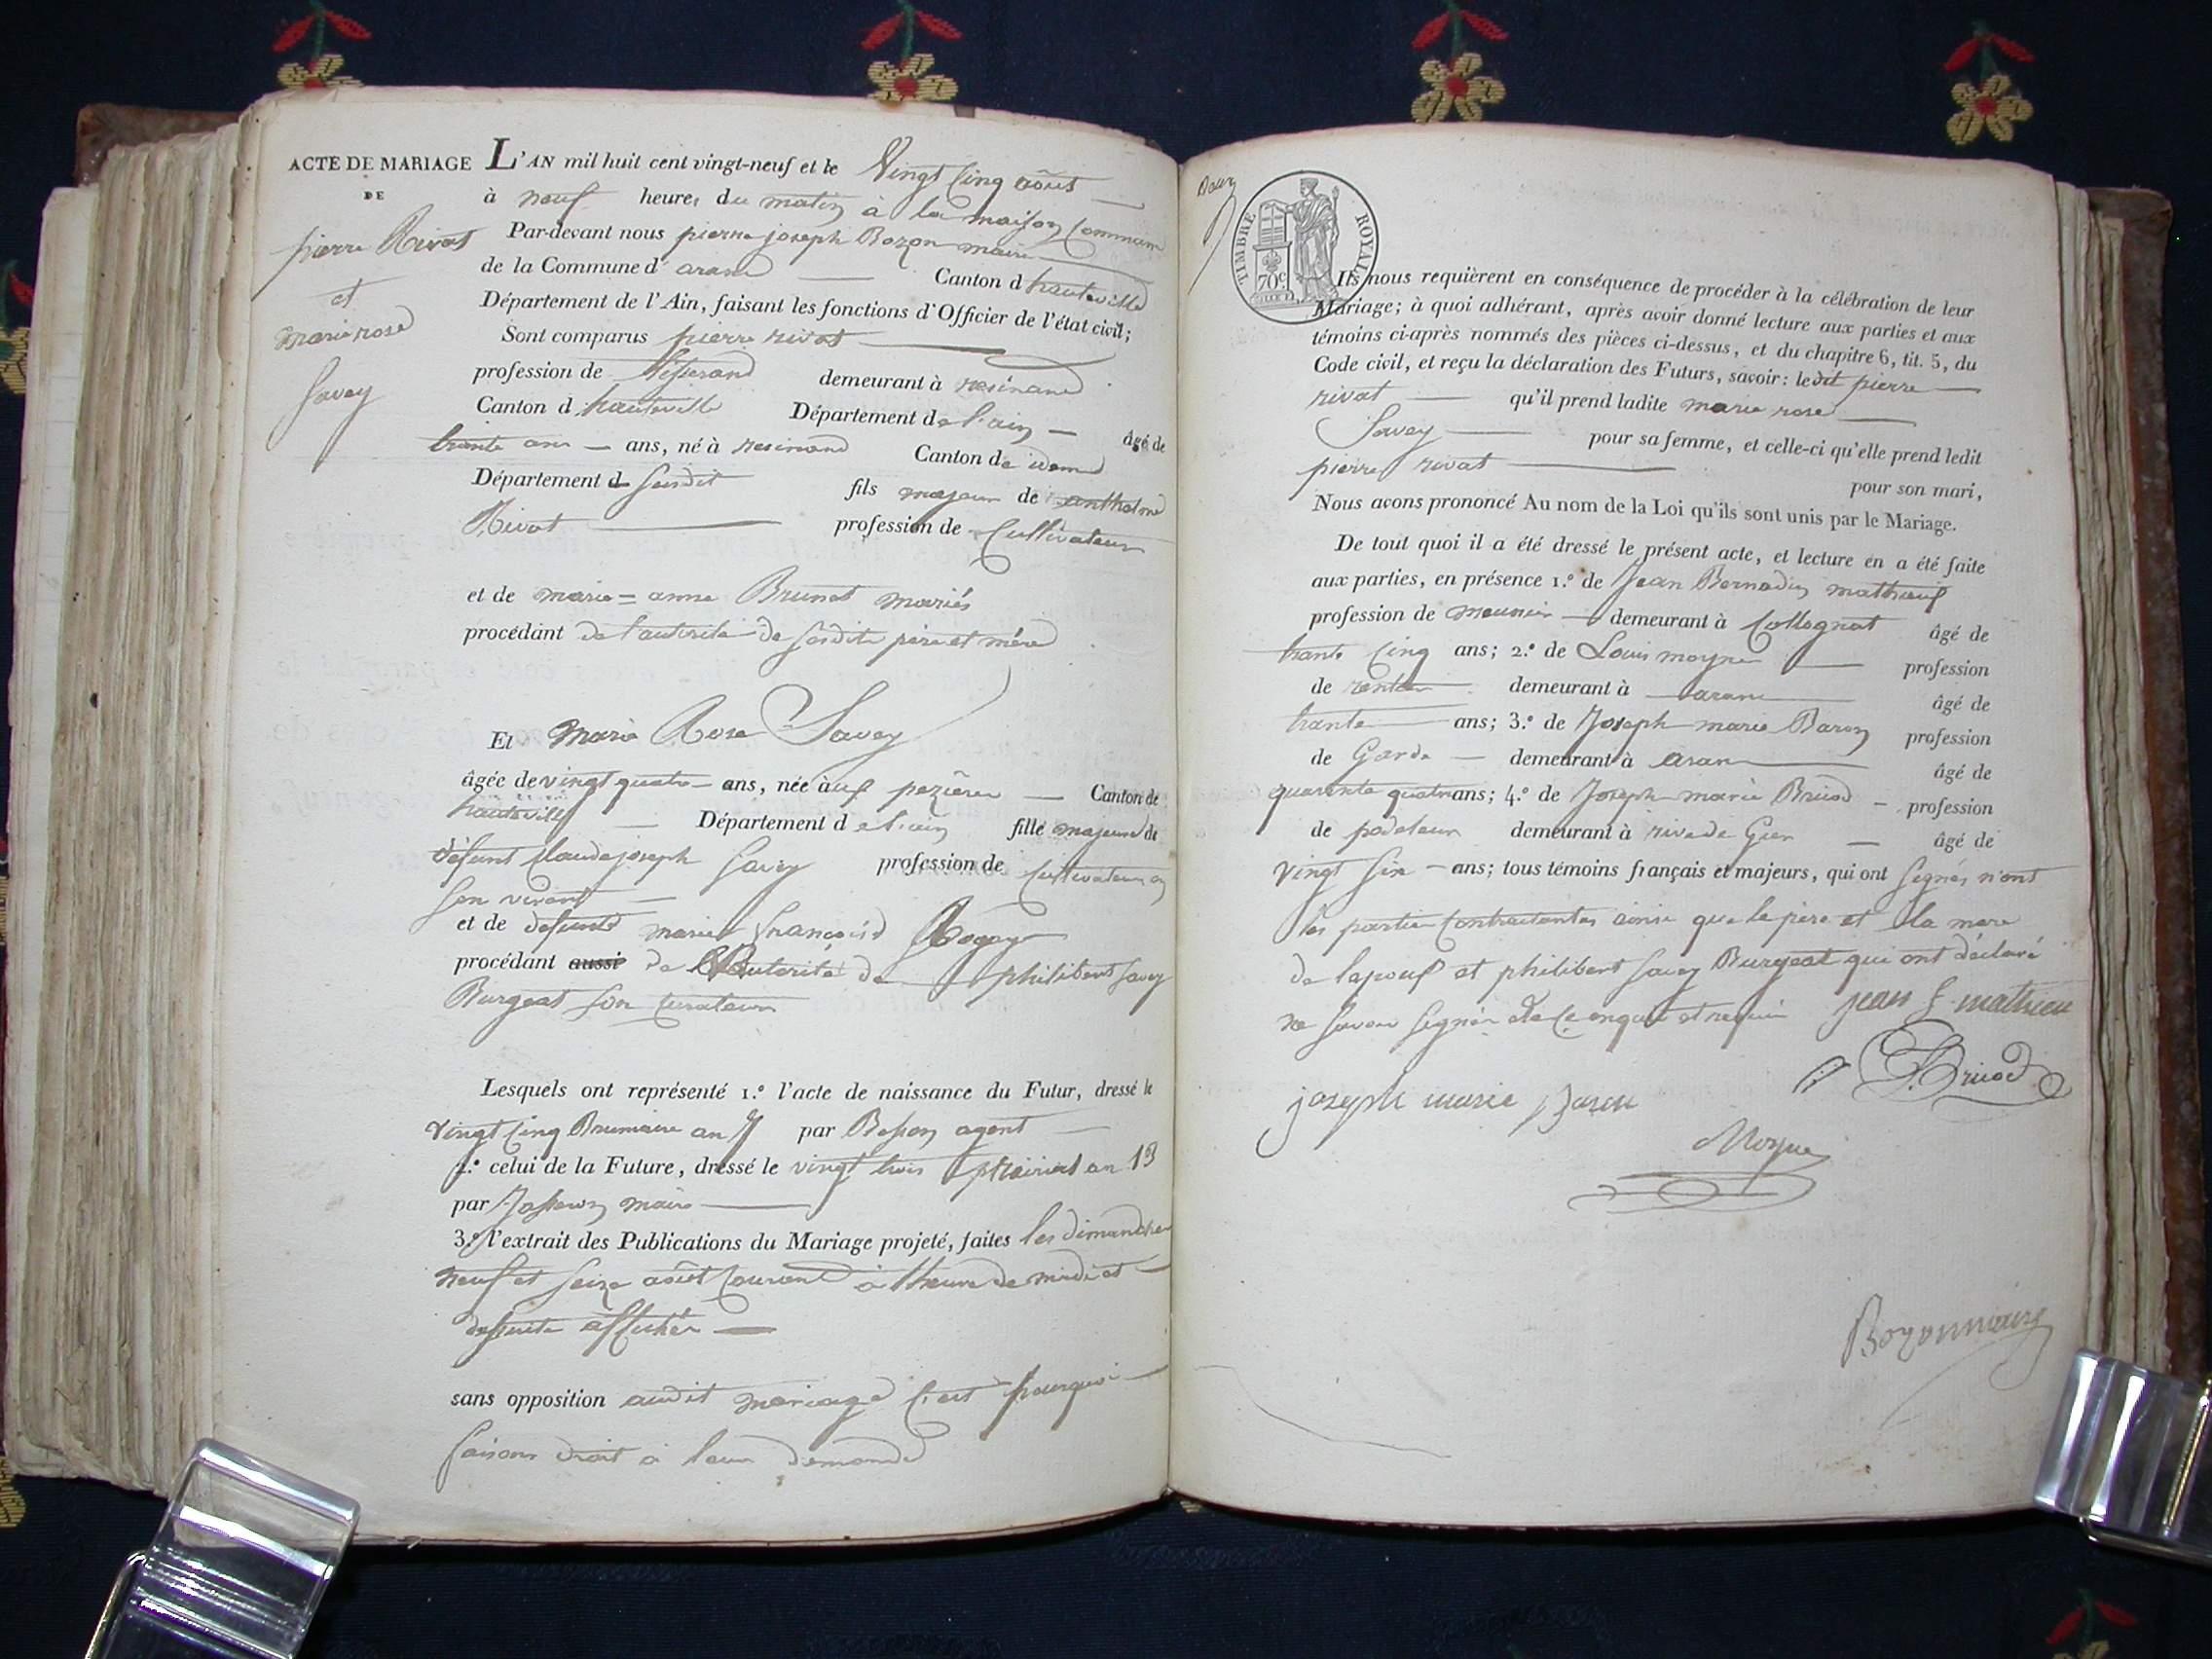 ACTE DE MARIAGE
DE
pierre Rivat
et
marie rose
Savey
L'AN mil huit cent vingt-neuf et le Vingt Cinq août
à neuf heures du matin à la maison Commune
Par-devant nous pierre joseph Bozon maire
de la Commune d'aranc Canton d'hauteville
Département de l'Ain, faisant les fonctions d'Officier de l'état civil;
Sont comparus pierre rivat
profession de tisserand demeurant à resinand
Canton d'hauteville Département de l'ain âgé de
trante ans ans, né à resinand Canton de idem
Département d susdit fils majeur de anthelme
Rivat profession de Cultivateur
et de marie = anne Brunet mariés
procédant de l'autorité de sesdits père et mère
Et Marie Rose Savey
âgée de vingt quatre ans, née aux pezières Canton de
hauteville Département de l'ain fille majeure de
défunt Claude joseph Savey profession de Cultivateur en
son vivant
et de defunte marie françoise
procédant aussi de l'Autorité de philibert Savey
Burgeat son curateur
Lesquels ont représenté 1.º l'acte de naissance du Futur, dressé le
vingt Cinq Brumaire an par Besson agent
2.º celui de la Future, dressé le vingt trois prairial an 13
par maire
3.º l'extrait des Publications du Mariage projeté, faites les dimanches
neuf et seize août Courant à l'heure de midi et
desuite affichés
sans opposition audit mariage C'est pourquoi
faisons droit à leur demande
TIMBRE ROYAL
70c
Ils nous requièrent en conséquence de procéder à la célébration de leur
Mariage; à quoi adhérant, après avoir donné lecture aux parties et aux
témoins ci-après nommés des pièces ci-dessus, et du chapitre 6, tit. 5, du
Code civil, et reçu la déclaration des Futurs, savoir: ledit pierre
rivat qu'il prend ladite marie rose
Savey pour sa femme, et celle-ci qu'elle prend ledit
pierre rivat pour son mari,
Nous avons prononcé Au nom de la Loi qu'ils sont unis par le Mariage.
De tout quoi il a été dressé le présent acte, et lecture en a été faite
aux parties, en présence 1.º de Jean Bernadin mathieu
profession de meunier demeurant à Collognat âgé de
trante Cinq ans; 2.º de Louis moyne profession
de rentier demeurant à aranc âgé de
trante ans; 3.º de Joseph marie Baron profession
de Garde demeurant à aranc âgé de
quarante quatre ans; 4.º de Joseph marie Bruod profession
de demeurant à rive de Gier âgé de
vingt six ans; tous témoins français et majeurs, qui ont signés n'ont
les parties Contractantes ainsi que le père et la mere
de lepoux et philibert Savey Burgeat qui ont déclaré
ne savoir signer de Ce enquis et requis jean f mathieu
Bruod
joseph marie Baron
Moyne
Bozon maire